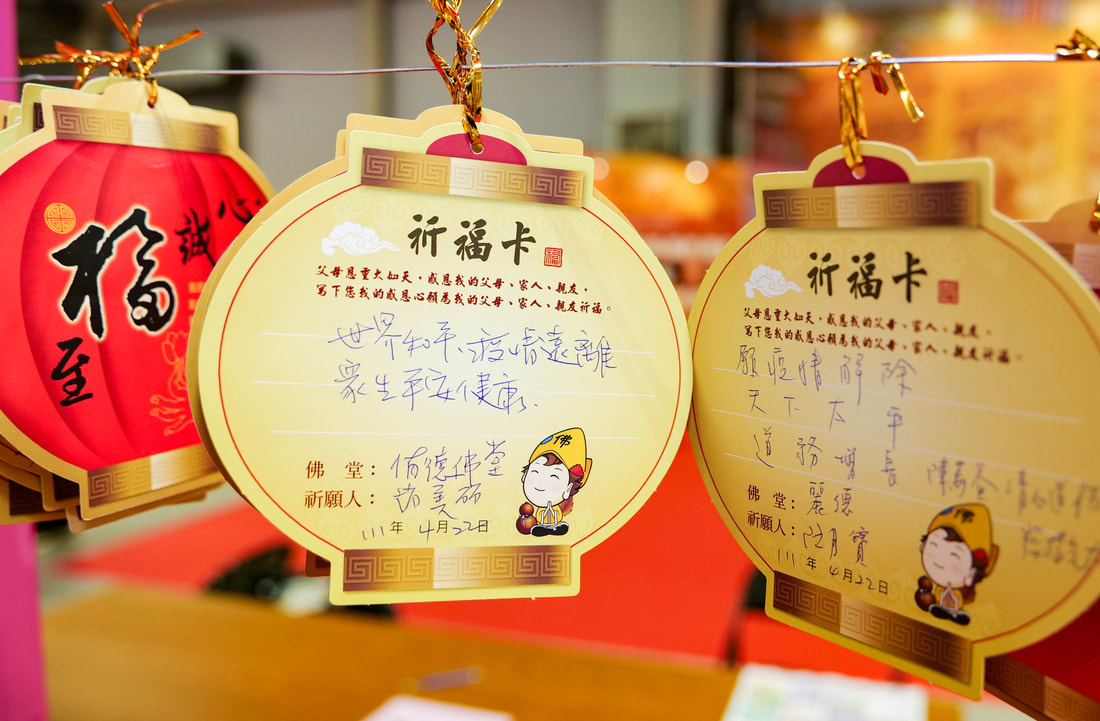 福
誠心
至
祈福卡
福
父母恩重大如天，感恩我的父母、家人、親友，
寫下您我的感恩心願為我的父母、家人、親友祈福。
世界和平、疫情遠離
眾生平安健康.
佛堂：德佛堂
祈願人：美
111年 4月22日
佛
祈福卡
福
父母恩重大如天，感恩我的父母、家人、親友，
寫下您我的感恩心願為我的父母、家人、親友祈福。
願疫情解除
天下太平
道務增長
佛堂：麗德
祈願人：月寶
111年 4月22日
佛